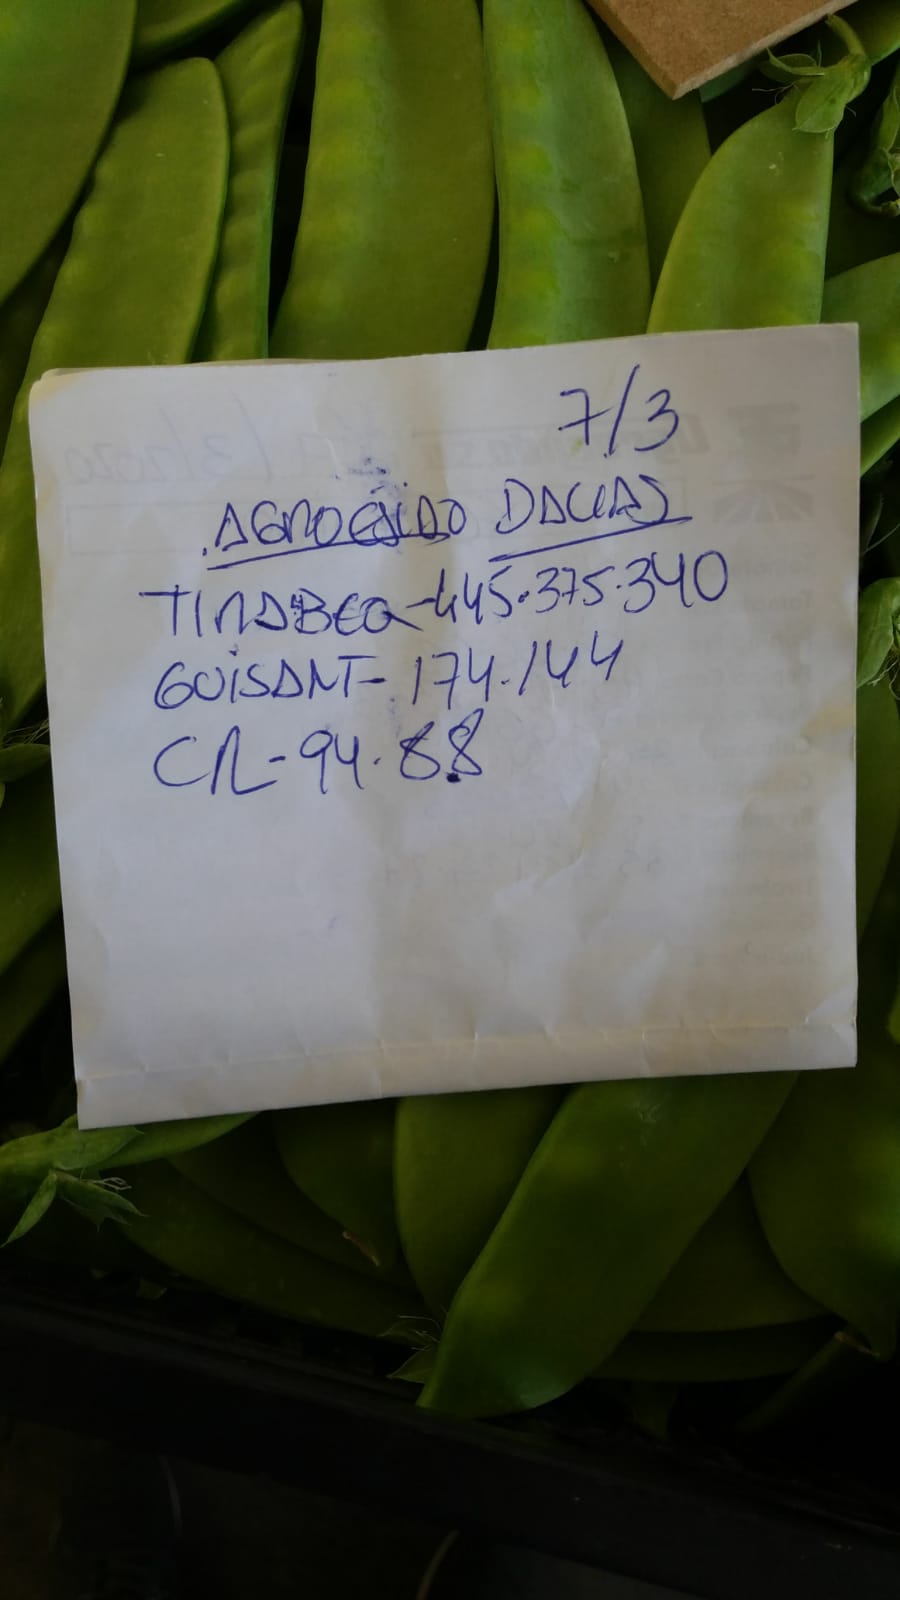 7/3
AGROEJIDO DALIAS
TIRABEQ-445.375.340
GUISANT-174.144
CR-94.88